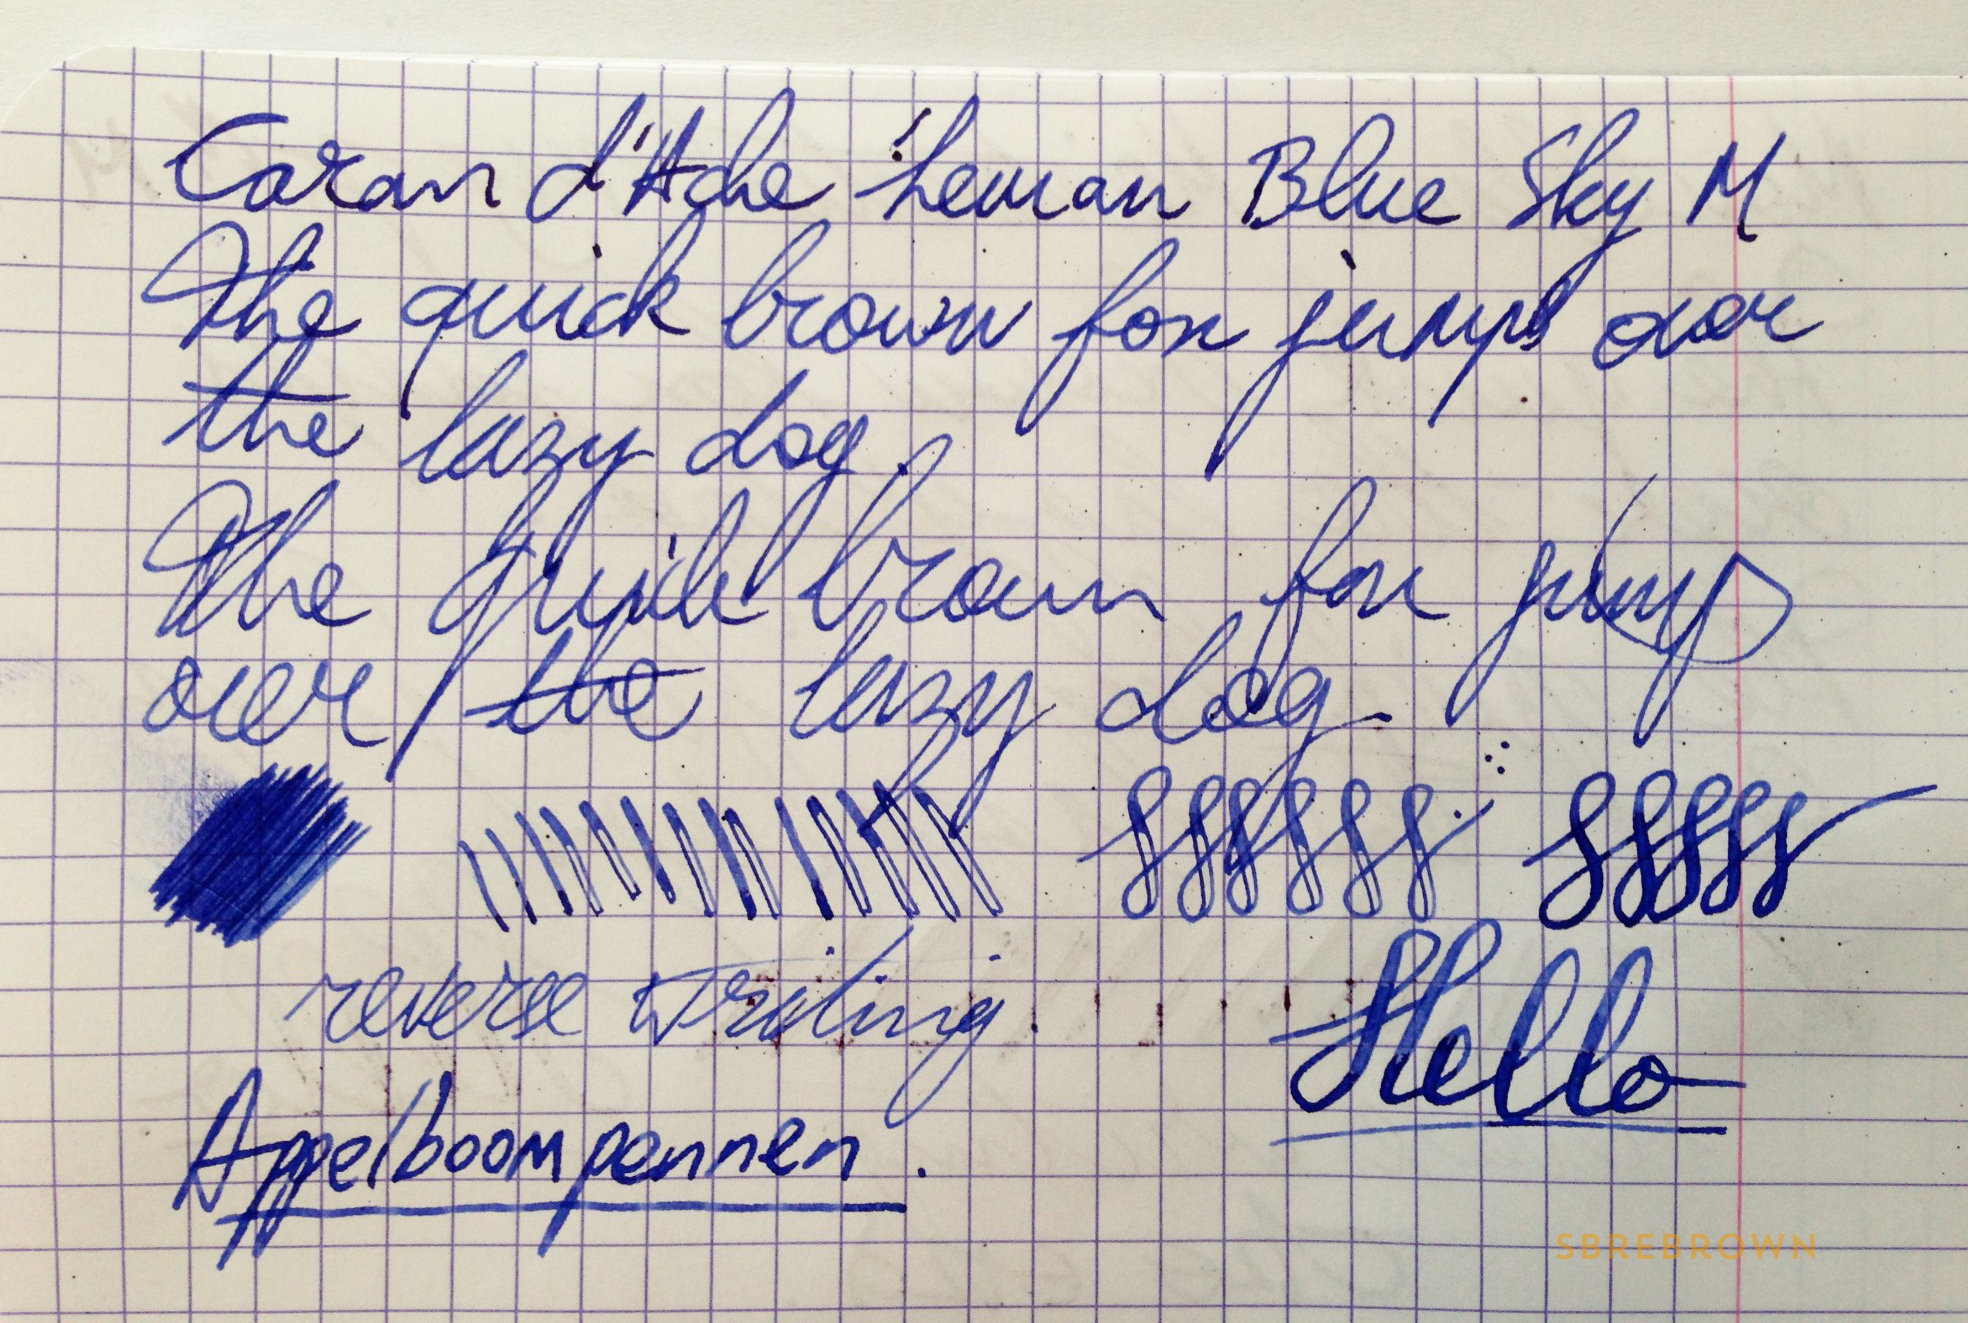 Caran d'Ache Léman Blue Sky M
The quick brown fox jumps over
the lazy dog.
The quick brown fox jumps
over the lazy dog.
reverse writing
Hello
Appelboom pennen.
SBREBROWN